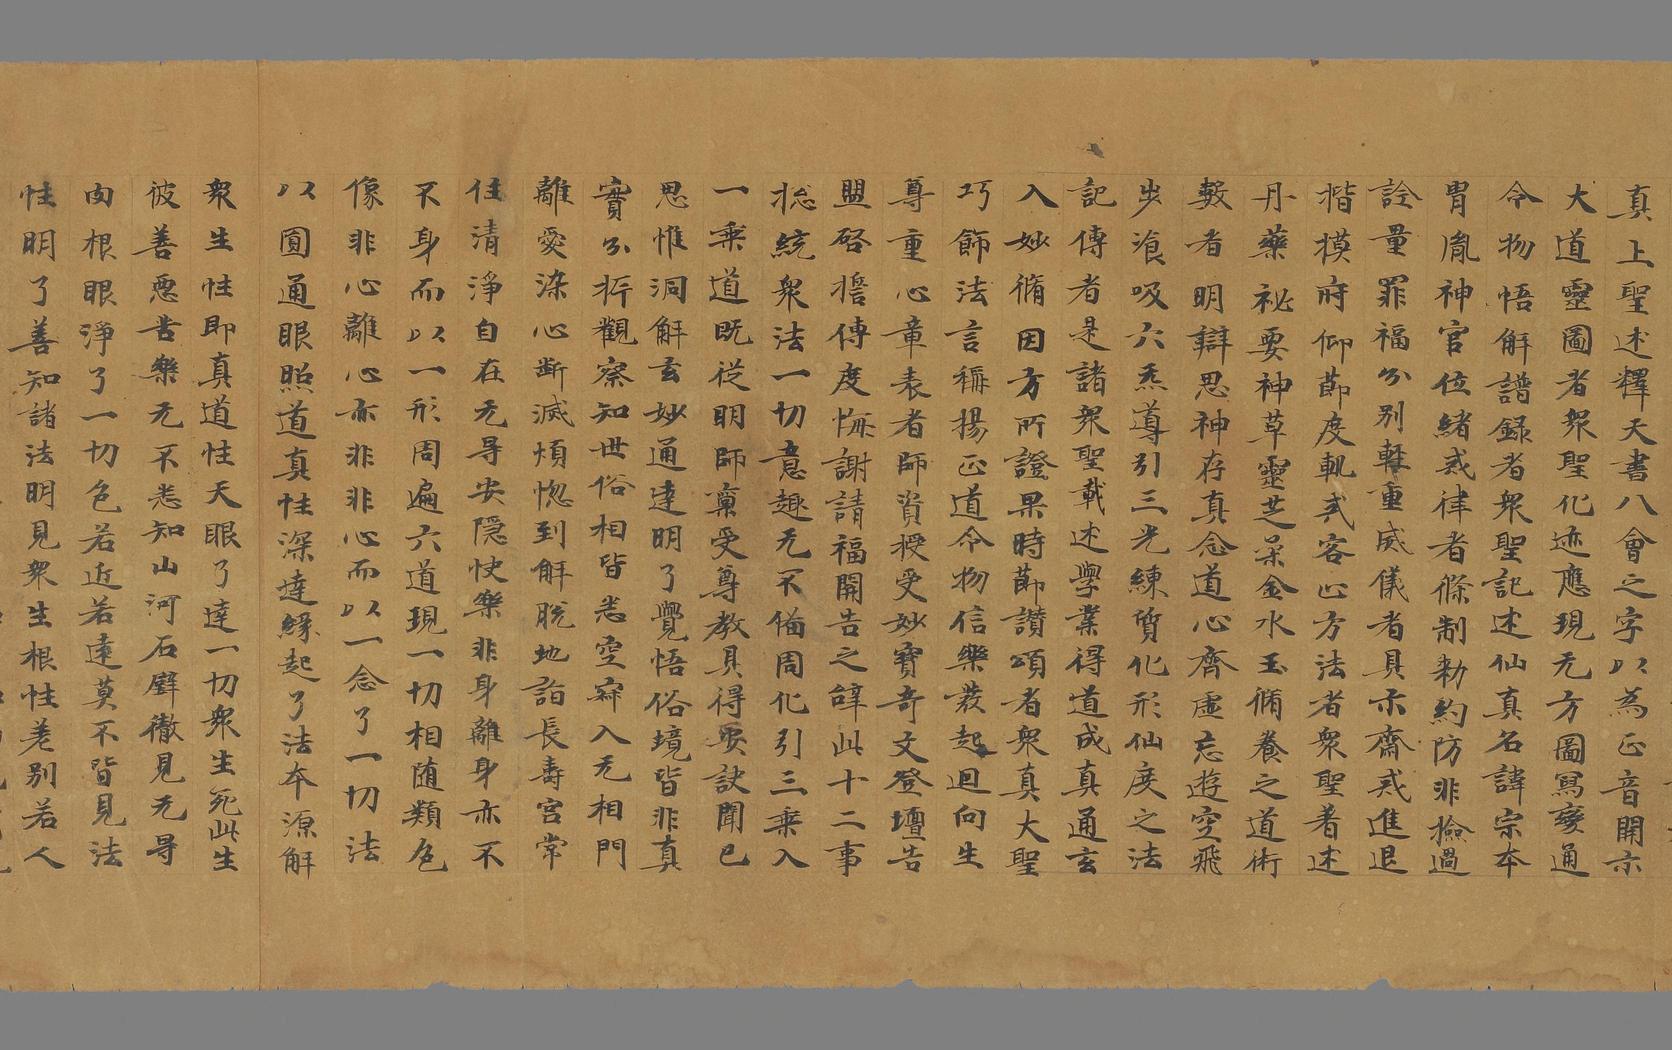 真上聖述釋天書八會之字以為正音開示
大道靈圖者衆聖化迹應現无方圖寫變通
令物悟解譜録者衆聖記述仙真名諱宗本
胄胤神官位緒戒律者條制勑約防非撿過
詮量罪福分别輕重威儀者具示齋戒進退
揩模府仰節度軌式容止方法者衆聖著述
丹藥祕要神草靈芝柔金水玉脩養之道術
數者明辯思神存真念道心齊虛忘遊空飛
步飡吸六炁導引三光練質化形仙度之法
記傳者是諸衆聖載述學業得道成真通玄
入妙脩因方所證果時節讃頌者衆真大聖
巧飾法言稱揚正道令物信樂發起迴向生
尊重心章表者師資授受妙寶奇文登壇告
盟啓擔傳度悔謝請福開告之辝此十二事
揔統衆法一切意趣无不俻周化引三乘入
一乘道既從明師稟受尊教具得要訣聞已
思惟洞解玄妙通達明了覺悟俗境皆非真
實分析觀察知世俗相皆悉空寂入无相門
離愛染心断滅煩惚到解脱地詣長壽宫常
住清淨自在无㝵安隱快樂非身離身亦不
不身而以一形周遍六道現一切相随類色
像非心離心亦非非心而以一念了一切法
以圓通眼照道真性深達緣起了法本源解
衆生性即真道性天眼了達一切衆生死此生
彼善惡苦樂无不悉知山河石壁徹見无㝵
肉根眼淨了一切色若近若遠莫不皆見法
性明了善知諸法明見衆生根性差别若人